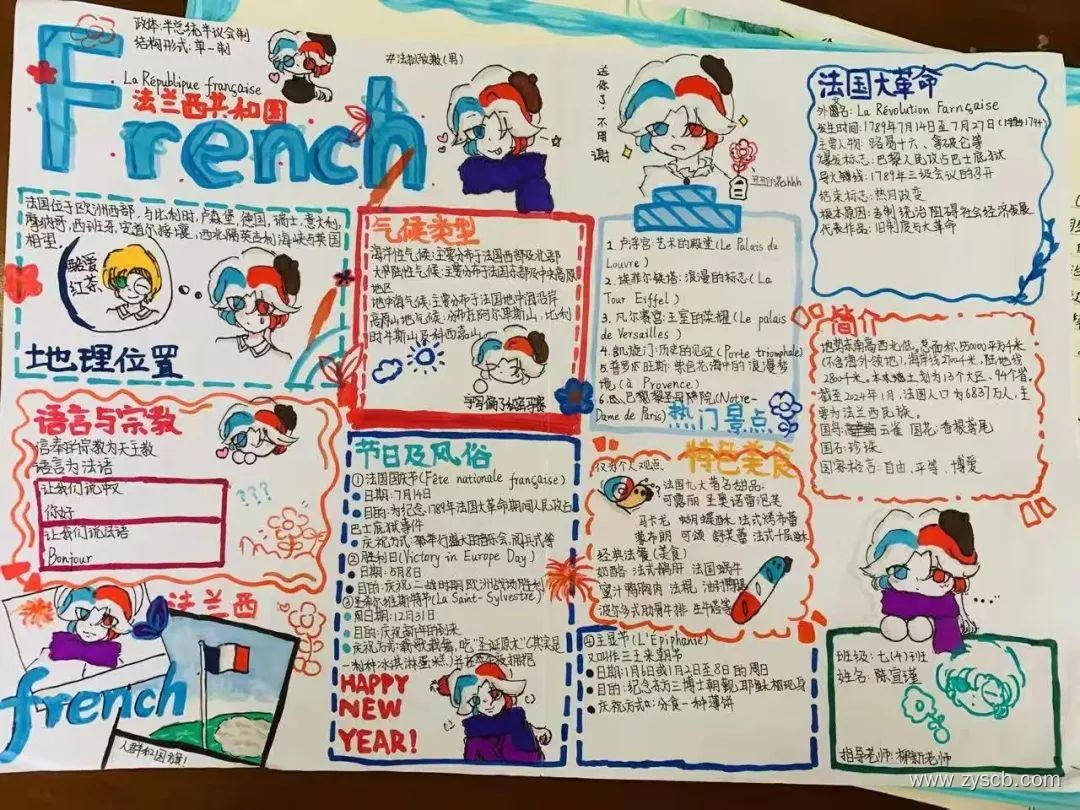 French
政体:半总统半议会制
结构形式:单一制
La République française
法兰西共和国
#法拟致歉(男)
送你了,不用谢
法国大革命
外名: La Révolution Farnçaise
发生时间:1789年7月14日至7月27日
主要人物:路易十六、拿破仑等
爆发标志:巴黎人民攻占巴士底狱
导火线:1789年三级会议的召开
结束标志:热月政变
根本原因:专制统治阻碍社会经济发展
代表作品:旧制度与大革命
法国位于欧洲西部,与比利时,卢森堡,德国,瑞士,意大利,
摩纳哥,西班牙,安道尔接壤,西北隔英吉利海峡与英国
相望
红茶
地理位置
气候类型
海洋性气候:主要分布于法国西部及北部
大陆性气候:主要分布于法国东部及中央高原
地区
地中海气候:主要分布于法国地中海沿岸
高原山地气候:分布在阿尔卑斯山,比利
牛斯山及科西嘉山
1.卢浮宫:艺术的殿堂(Le Palais du
Louvre)
2.埃菲尔铁塔:浪漫的标志(La
Tour Eiffel)
3.凡尔赛宫:王室的荣耀(Le palais
de Versailles)
4.凯旋门:历史的见证(Porte triomphale)
5.普罗旺斯:紫色花海中的浪漫梦
境(à Provence)
6.巴黎圣母院(Notre-
Dame de Paris)
热门景点
简介
地势东南高西北低,总面积550000平方千米
(不含海外领地),海岸线2700千米,陆地线
2800千米,本土划为13个大区、94个省,
截至2024年1月,法国人口为6837万人,主
要为法兰西民族。
国鸟:云雀 国花:香根鸢尾
国石:珍珠
国家格言:自由,平等,博爱
语言与宗教
信奉的宗教为天主教
语言为法语
让我们说中文
你好
让我们说法语
Bonjour
???
节日及风俗
①法国国庆节(Fête nationale française)
日期:7月14日
目的:为纪念1789年法国大革命期间人民攻占
巴士底狱事件
庆祝方式:举行盛大的音乐会,阅兵式等
②胜利日(Victory in Europe Day)
日期:5月8日
目的:庆祝二战时期欧洲战场胜利
③圣希尔维斯特节(La Saint-Sylvestre)
日期:12月31日
目的:庆祝新年的到来
HAPPY
NEW
YEAR!
特色美食
仅为个人观点
法国九大著名甜品:
可露丽 圣奥诺雷泡芙
马卡龙 蝴蝶酥 法式烤布蕾
蒙布朗 可颂 舒芙蕾 法式千层酥
经典法餐(美食)
奶酪 法式鹅肝 法国蜗牛
蜜汁鸭胸肉 法棍 油封鸭腿
④主显节(L'Épiphanie)
又叫作三王来朝节
日期:1月6日或1月2日至8日的周日
目的:纪念东方三博士朝觐,耶稣相现身
庆祝方式:分食一种薄饼
法兰西
french
班级:七(4)班
姓名:陈宣瑾
指导老师:柳新老师
www.zyscb.com